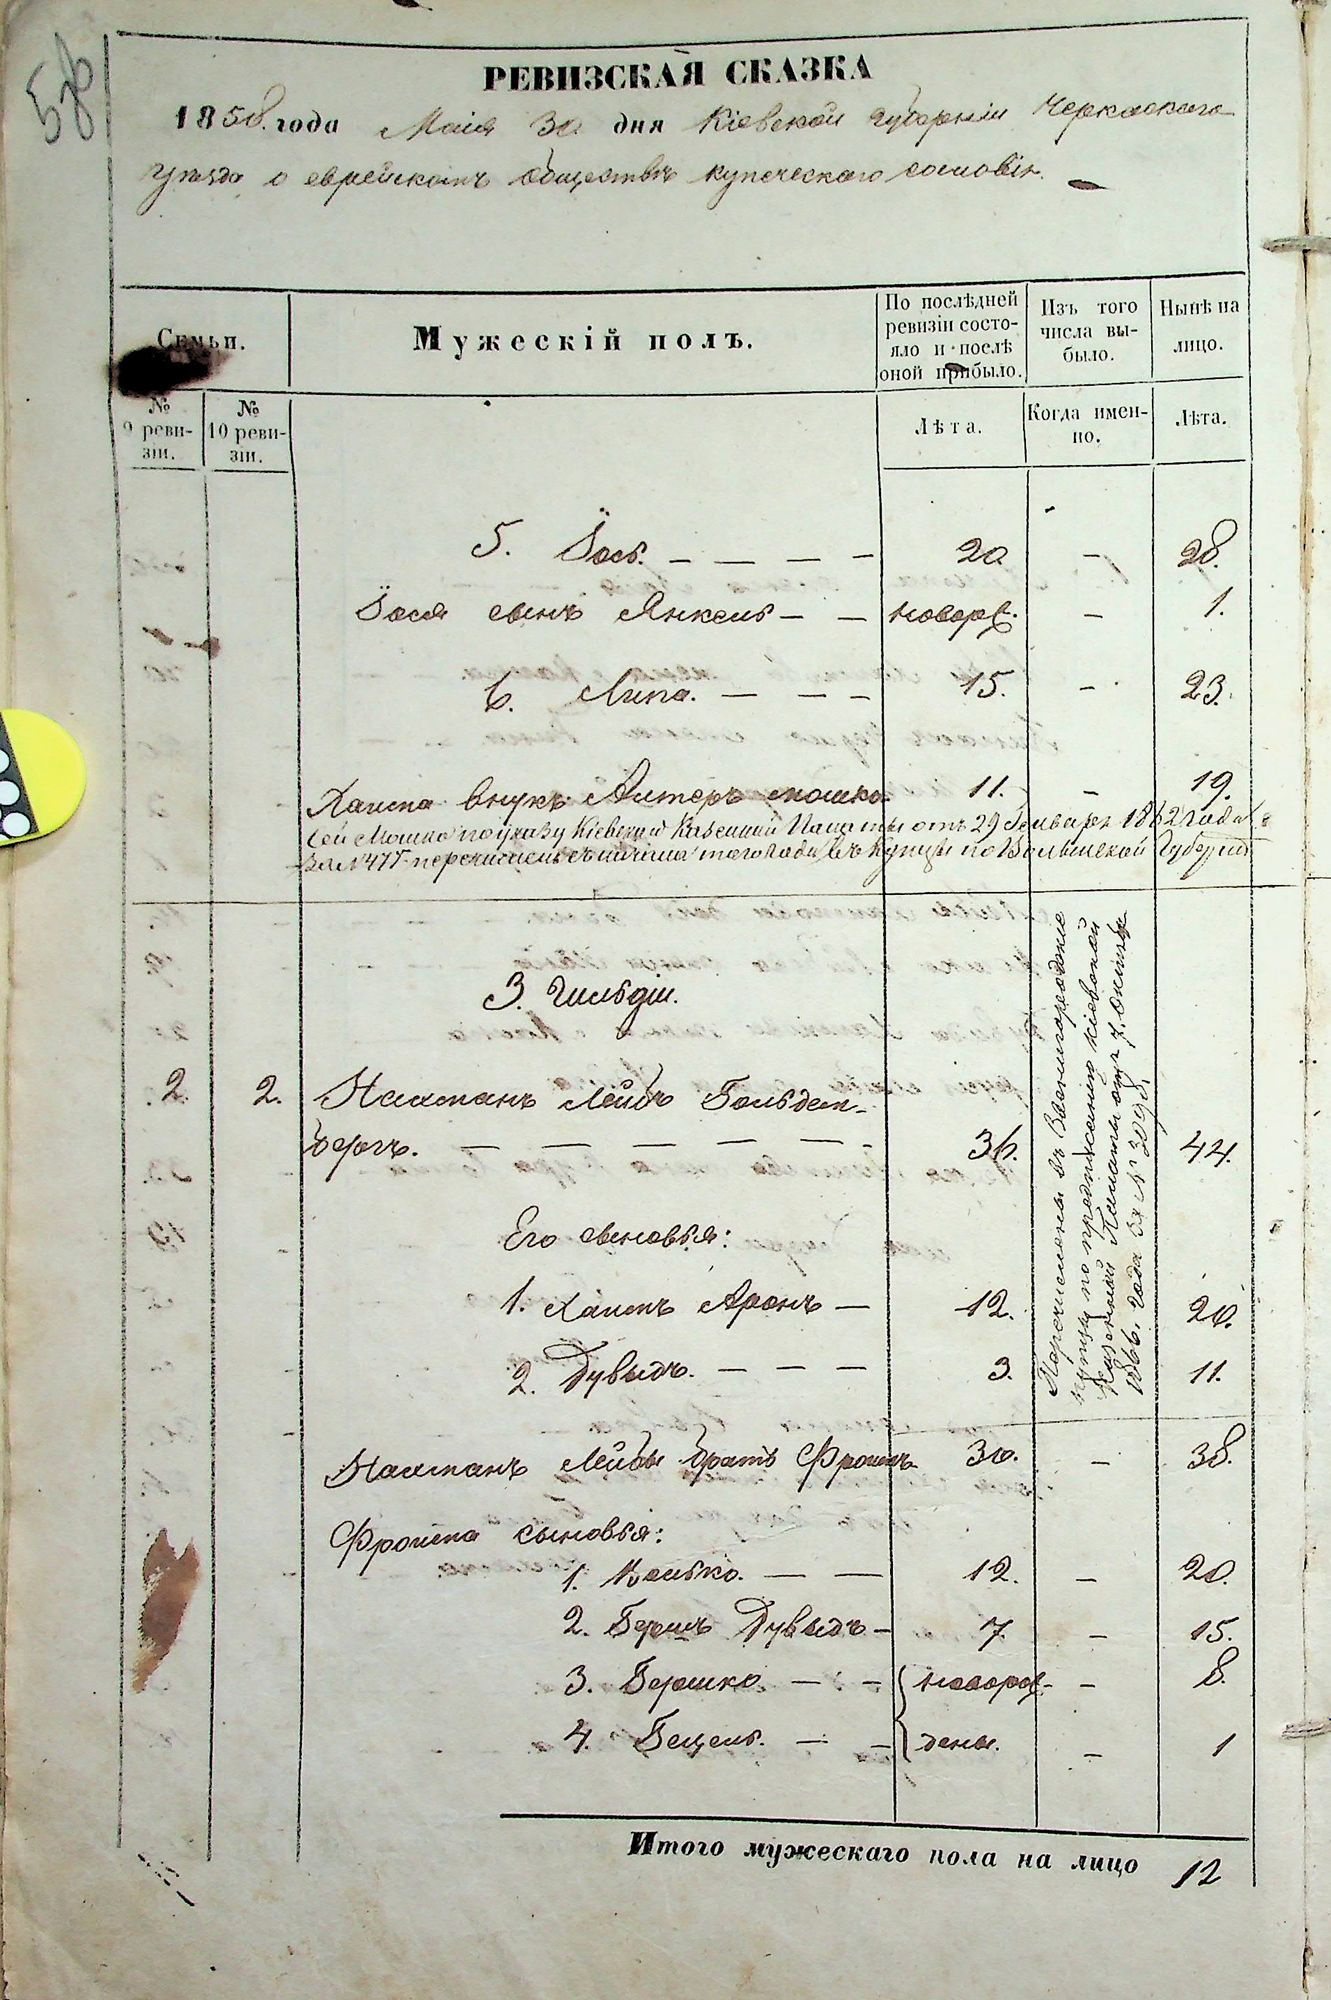 58
РЕВИЗСКАЯ СКАЗКА
1858. года Маія 30 дня Кіевской Губерніи Черкаскаго
уѣзда о еврейскомъ обществѣ купеческаго сословія.
Семьи.
Мужескій полъ.
По послѣдней ревизіи состояло и послѣ оной прибыло.
Изъ того числа выбыло.
Нынѣ на лицо.
№ 9 ревизіи.
№ 10 ревизіи.
Лѣта.
Когда именно.
Лѣта.
5. Іось. — — — — 20 — 28.
Іося сынъ Янкель — — новорж. — 1.
6. Липа. — — — 15. — 23.
Хаима внукъ Алтеръ Мошко 11. — 19.
Сей Мошко по указу Кіевской Казенной Палаты отъ 29 Генваря 1862 года
за № 477 перечисленъ съ начала того года въ купцы по Волынской Губерніи
3. Гильдіи.
2 2. Нахманъ Лейбъ Гольден-
бергъ. — — — — — — 36. 44.
Его сыновья:
1. Хаимъ Аронъ — 12. 20.
2. Дувыдъ. — — — 3. 11.
Перечислены въ Звенигородскіе
купцы по предписанію Кіевской
Казенной Палаты отъ 7. Октября
1866. года за №
Нахманъ Лейбы братъ Фроимъ 30. — 38.
Фроима сыновья:
1. Волько. — — 12. — 20.
2. Берко Дувыдъ — 7 — 15.
3. Гершко — — новорож- — 8.
4. Бецель. — — дены. — 1
Итого мужескаго пола на лицо 12